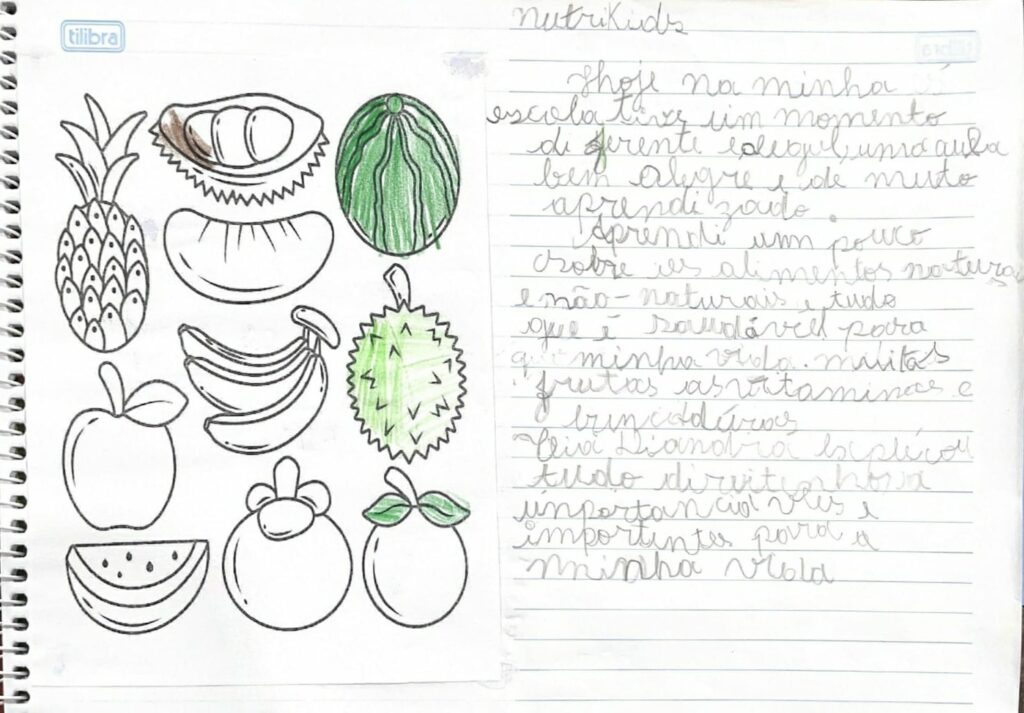 tilibra
NutriKids
Hoje na minha
escola tive um momento
diferente e legal, uma aula
bem alegre e de muito
aprendizado.
Aprendi um pouco
sobre es alimentos naturas
e não-naturais e tudo
que é saudável para
minha vida. muitas
frutas as vitaminas e
brincadeiras
Leandra explicou
tudo direitinho
importancia
importintes para a
minha vida